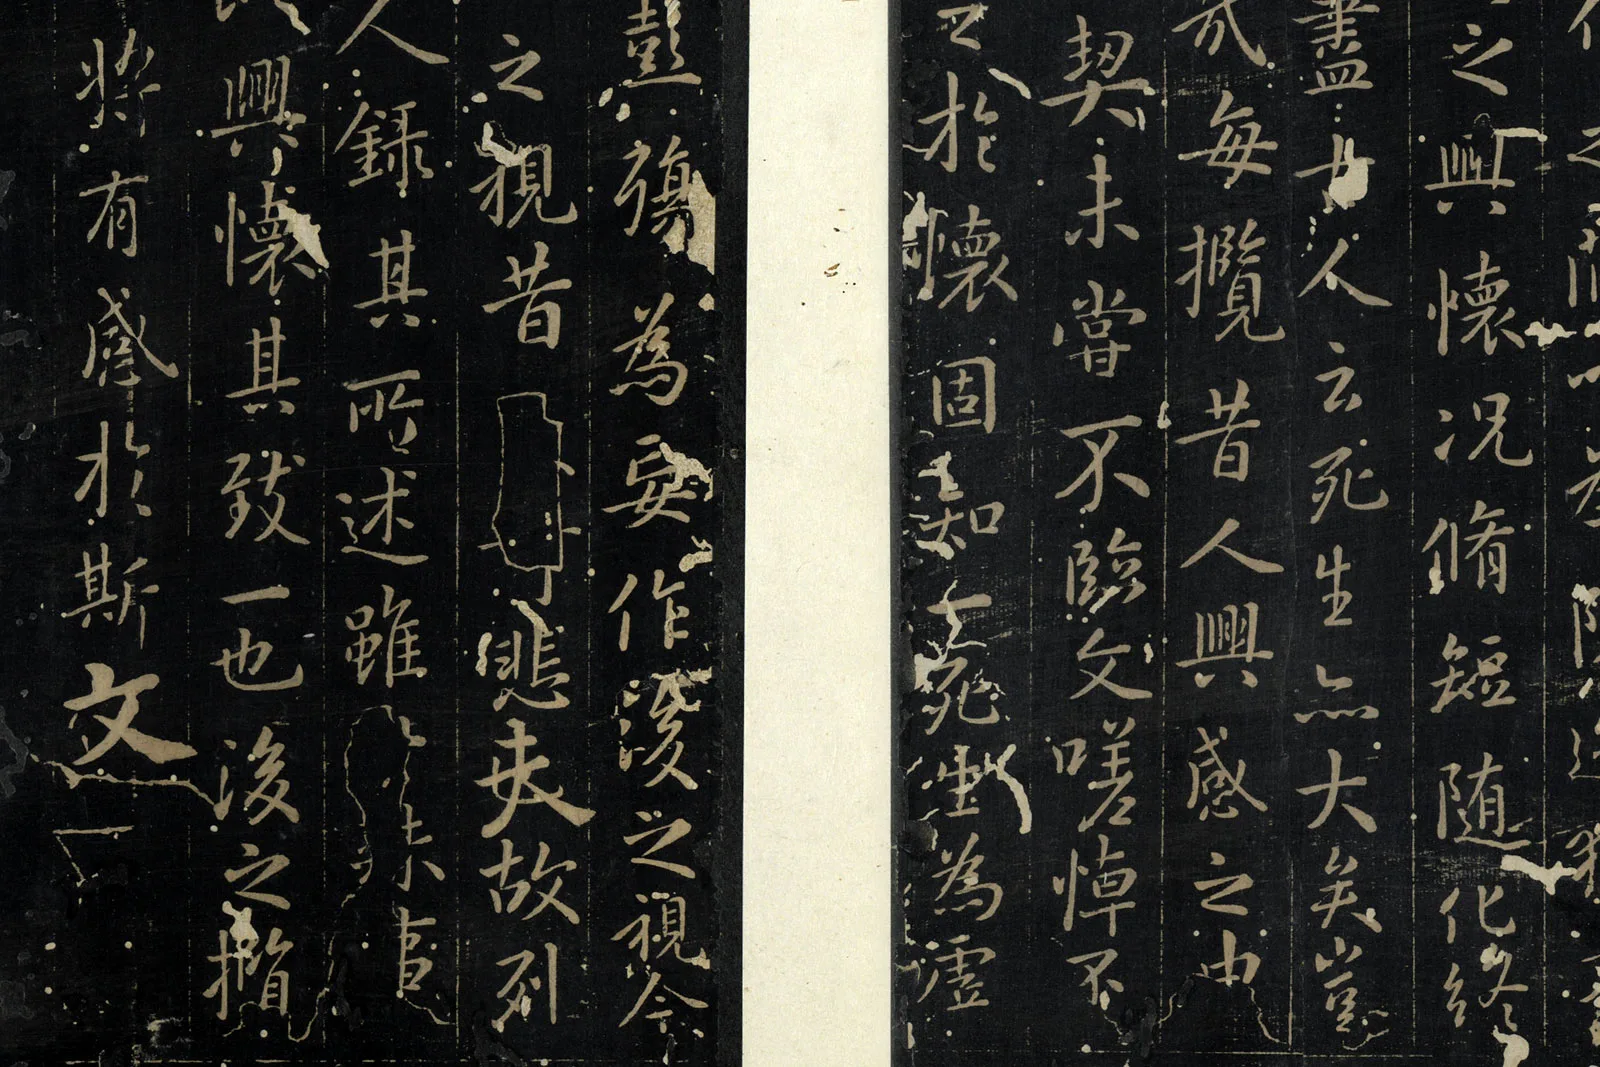 之興懷況脩短隨化終
盡古人云死生亦大矣豈
哉每攬昔人興感之由
契未嘗不臨文嗟悼不
之於懷固知一死生為虛
彭殤為妄作後之視今
之視昔悲夫故列
人錄其所述雖殊事
興懷其致一也後之攬
將有感於斯文